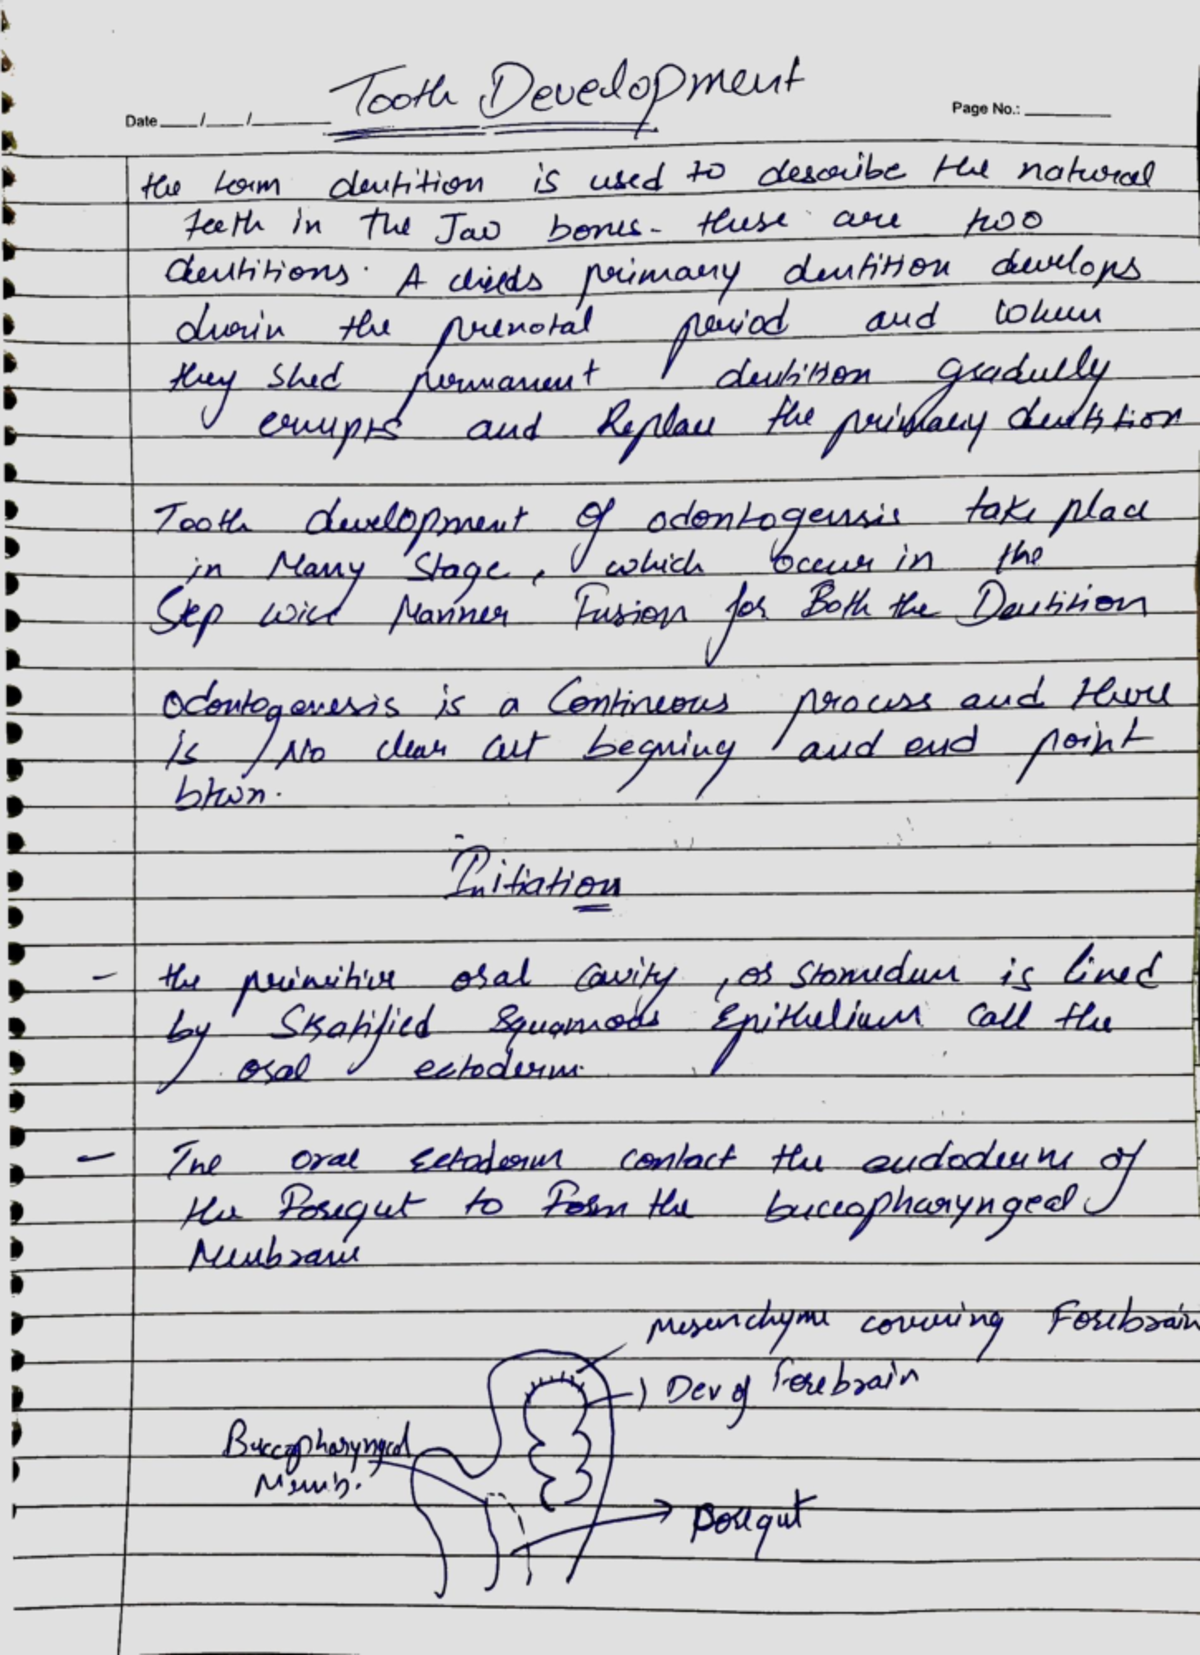 Tooth Development
Date___/___/______
Page No.: ______
the term dentition is used to describe the natural
teeth in the Jaw bones. these are two
dentitions. A childs primary dentition develops
durin the prenatal period and when
they shed permanent dentition gradully
errupts and Replace the primary dentition
Tooth development of odontogensis take place
in Many Stage, which occur in the
Step wise Manner Fusion for Both the Dentition
Odontogenesis is a Contineous process and there
is No clear cut begning and end point
btwn.
Initiation
- the primitive oral cavity, or Stomedum is lined
by Stratified Squamous Epithelium call the
oral ectoderm.
- The oral Ectoderm contact the endoderm of
the Foregut to Form the buccopharyngeal
Membrane
Mesenchyme covering Forebrain
Dev of Forebrain
Buccopharyngeal
Memb.
Foregut